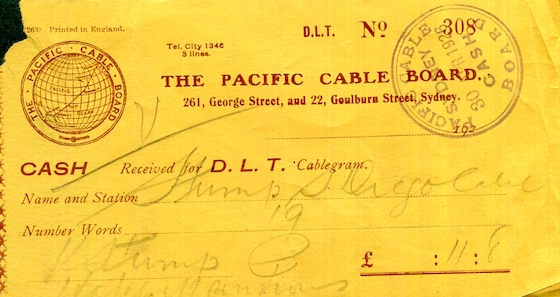 263) Printed in England.
D.L.T. No 308
Tel. City 1346
3 lines.
THE · PACIFIC · CABLE · BOARD ·
PACIFIC
OCEAN
PACIFIC CABLE BOARD
SYDNEY
CASH
30 1926
THE PACIFIC CABLE BOARD.
261, George Street, and 22, Goulburn Street, Sydney.
192
CASH Received for D. L. T. Cablegram.
Name and Station Stump
Number Words 19
Stump
£ : 11 : 8